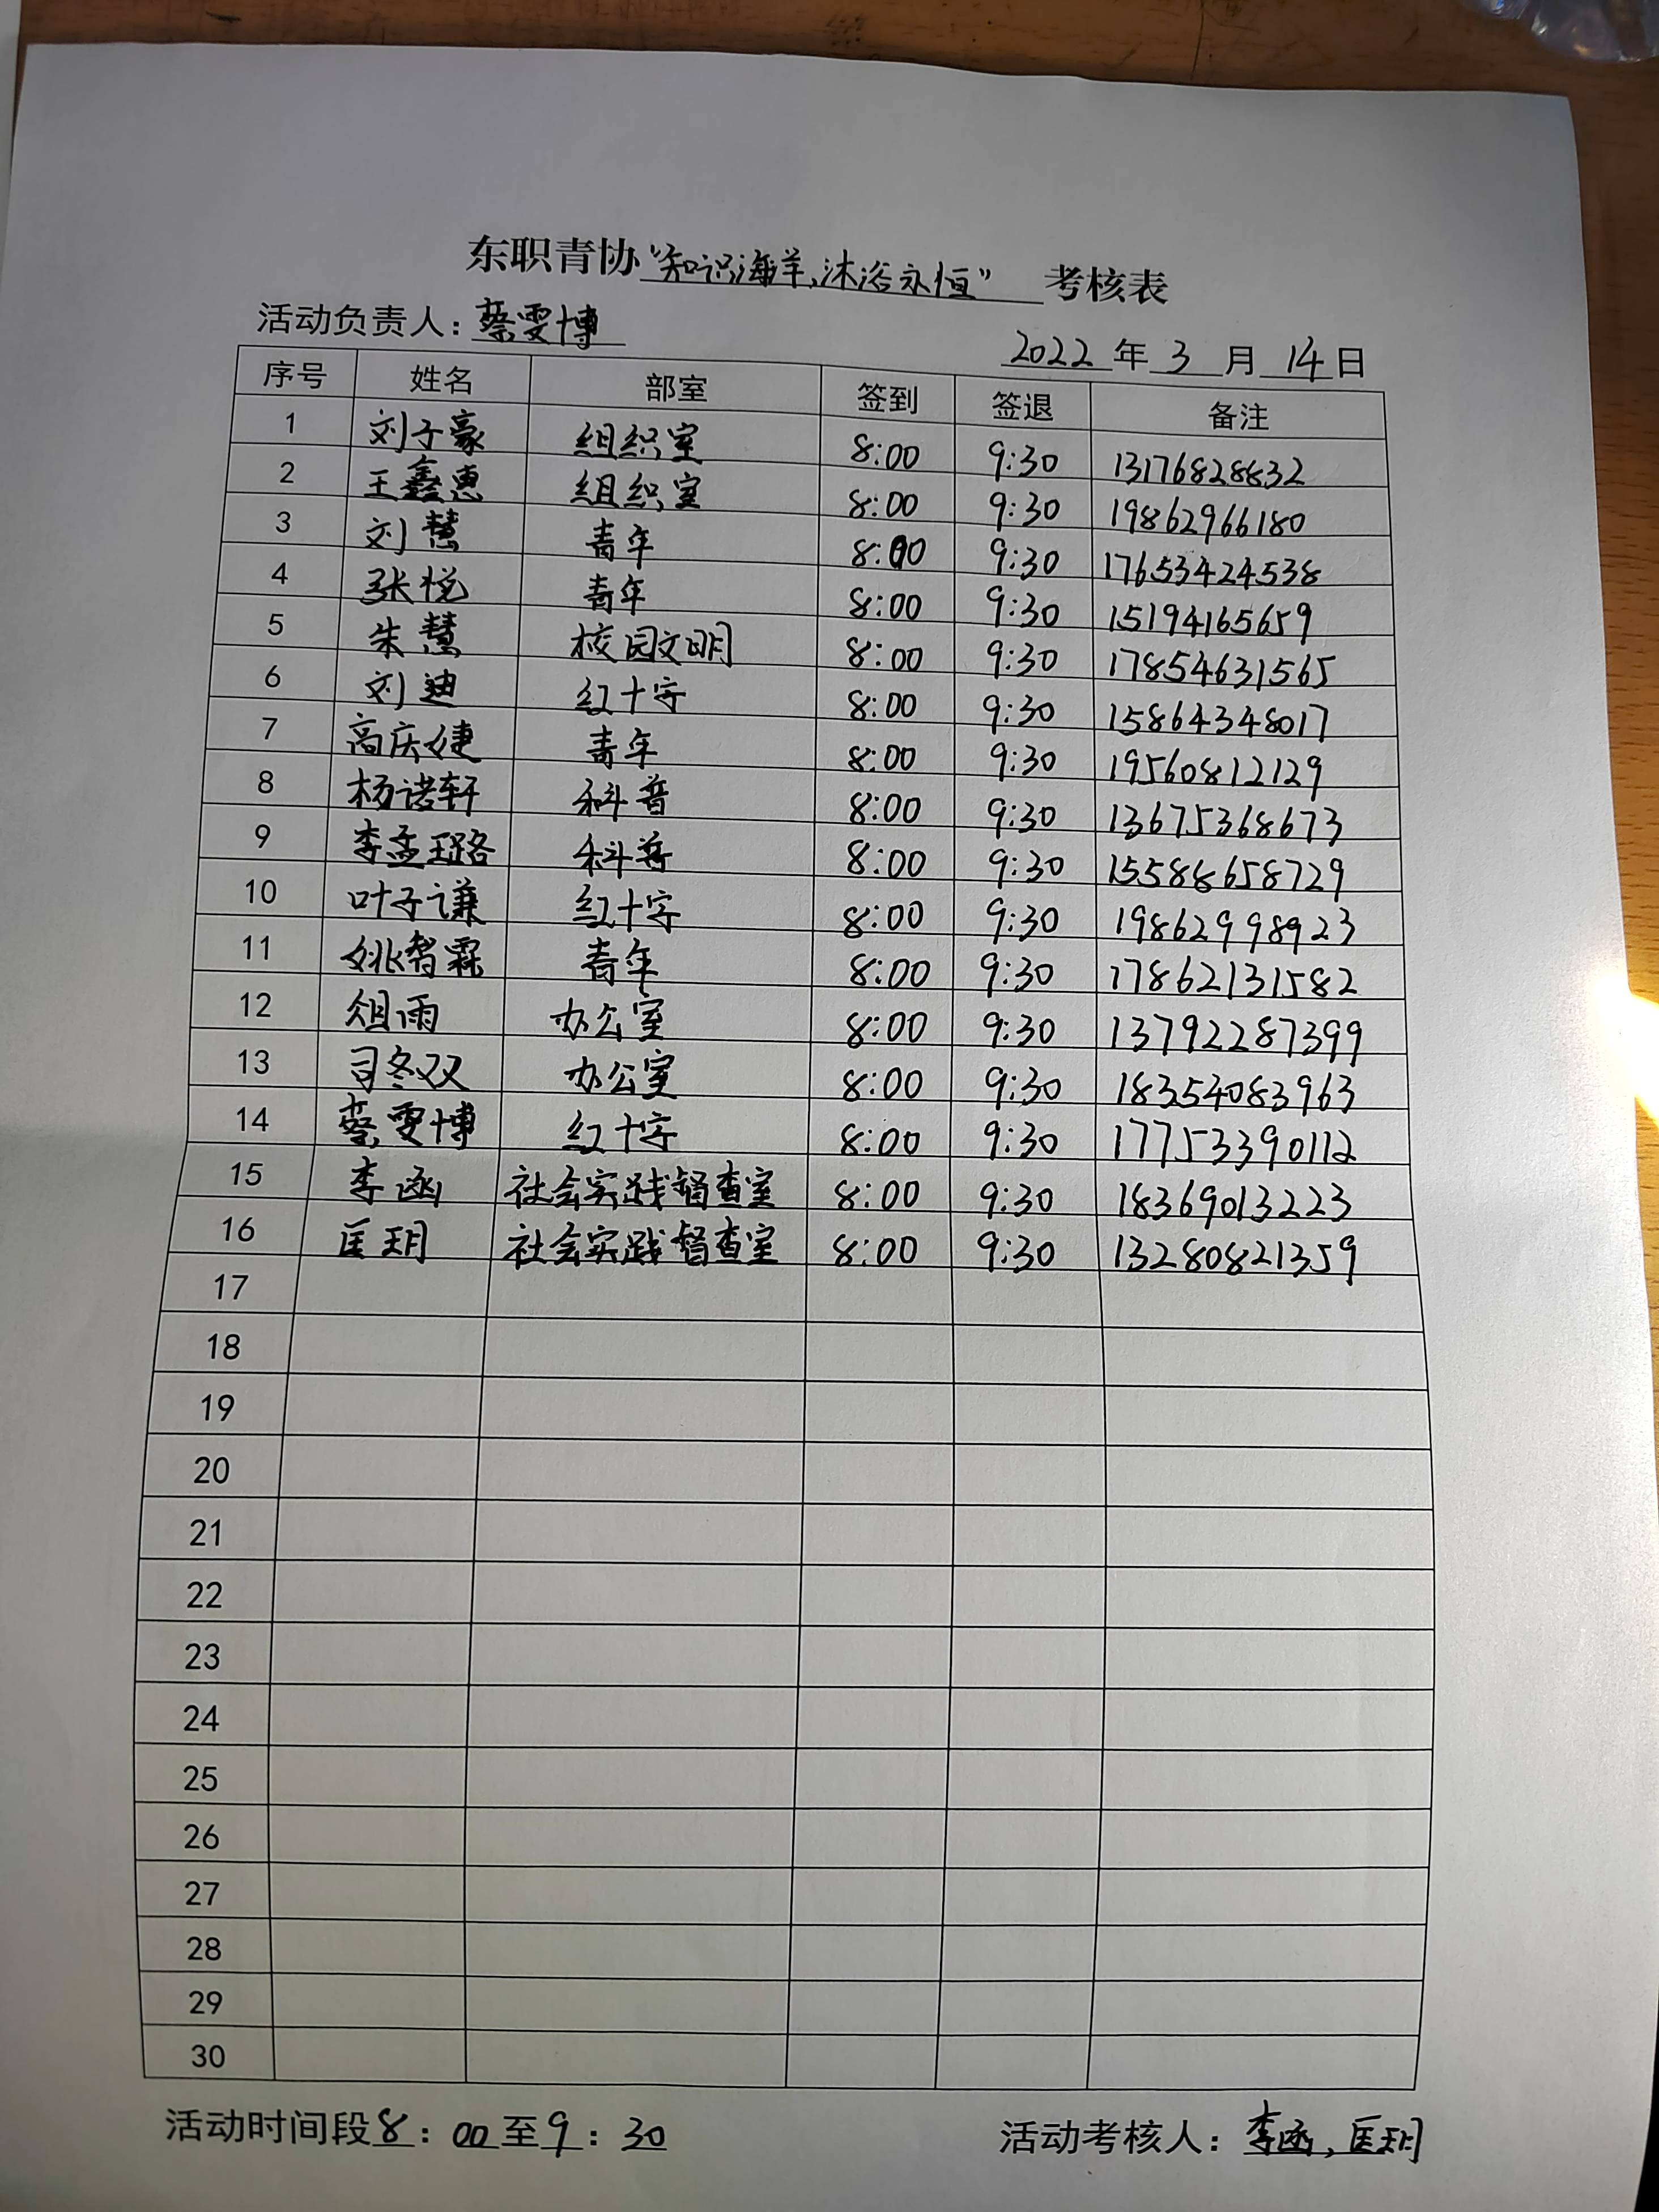 东职青协“知识海洋,沐浴永恒” 考核表
活动负责人：蔡雯博
2022 年 3 月 14 日
序号 姓名 部室 签到 签退 备注
1 刘子豪 组织室 8:00 9:30 13176828832
2 王鑫惠 组织室 8:00 9:30 19862966180
3 刘慧 青年 8:00 9:30 17653424538
4 张悦 青年 8:00 9:30 15194165659
5 朱慧 校园文明 8:00 9:30 17854631565
6 刘迪 红十字 8:00 9:30 15864348017
7 高庆婕 青年 8:00 9:30 19560812129
8 杨诺轩 科普 8:00 9:30 13675368673
9 李孟璐 科普 8:00 9:30 15588658729
10 叶子谦 红十字 8:00 9:30 19862998923
11 姚智霖 青年 8:00 9:30 17862131582
12 俎雨 办公室 8:00 9:30 13792287399
13 司冬双 办公室 8:00 9:30 18354083963
14 蔡雯博 红十字 8:00 9:30 17753390112
15 李函 社会实践督查室 8:00 9:30 18369013223
16 匡玥 社会实践督查室 8:00 9:30 13280821359
17
18
19
20
21
22
23
24
25
26
27
28
29
30
活动时间段 8：00 至 9：30 活动考核人：李函,匡玥